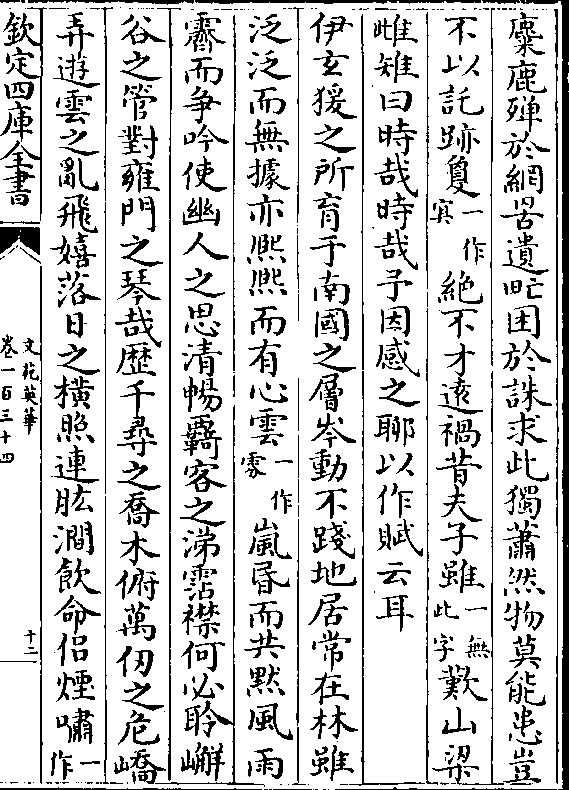 麋鹿殫於網罟遺甿困於誅求此獨蕭然物莫能患豈
不以託跡敻一作寞絶不才逺禍昔夫子雖一無此字歎山梁
雌雉曰時哉時哉予因感之聊以作賦云耳
伊玄猨之所育于南國之層岑動不踐地居常在林雖
泛泛而無據亦熙熙而有心雲一作霧嵐昬而共黙風雨
霽而争吟使幽人之思清暢羇客之涕霑襟何必聆嶰
谷之管對雍門之琴哉歴千尋之喬木俯萬仞之危嶠
弄遊雲之亂飛嬉落日之横照連肱澗飲命侣煙嘯一作
欽定四庫全書
文苑英華
卷一百三十四
十二